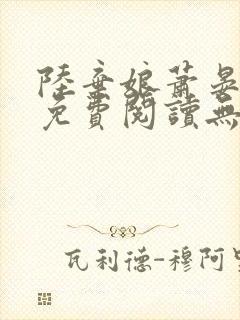 陸棄娘蕭晏
免費閱讀無
瓦利德-穆阿